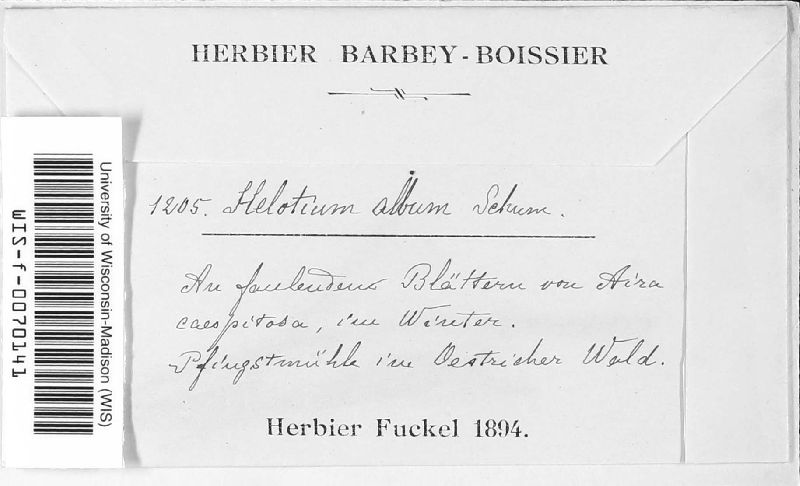 HERBIER BARBEY-BOISSIER
University of Wisconsin-Madison (WIS)
WIS-f-0070141
1205. Helotium album Schum.
An faulenden Blättern von Aira
caespitosa, im Winter.
Pfingstmühle im Oestricher Wald.
Herbier Fuckel 1894.